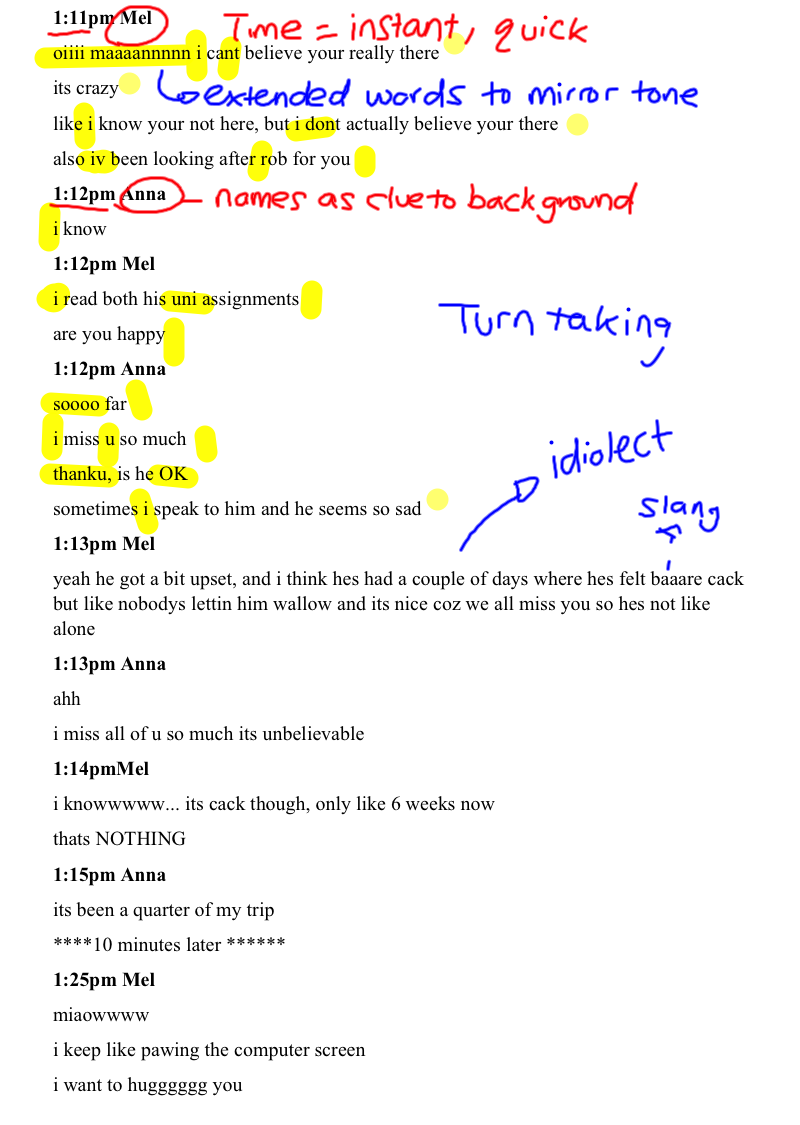 1:11pm Mel Time = instant, quick
oiiii maaaannnnn i cant believe your really there
its crazy extended words to mirror tone
like i know your not here, but i dont actually believe your there
also iv been looking after rob for you
1:12pm Anna – names as clue to background
i know
1:12pm Mel
i read both his uni assignments
Turn taking
are you happy
1:12pm Anna
soooo far
i miss u so much
idiolect
thanku, is he OK
sometimes i speak to him and he seems so sad
slang
1:13pm Mel
yeah he got a bit upset, and i think hes had a couple of days where hes felt baaare cack
but like nobodys lettin him wallow and its nice coz we all miss you so hes not like
alone
1:13pm Anna
ahh
i miss all of u so much its unbelievable
1:14pmMel
i knowwwww... its cack though, only like 6 weeks now
thats NOTHING
1:15pm Anna
its been a quarter of my trip
****10 minutes later ******
1:25pm Mel
miaowwww
i keep like pawing the computer screen
i want to hugggggg you